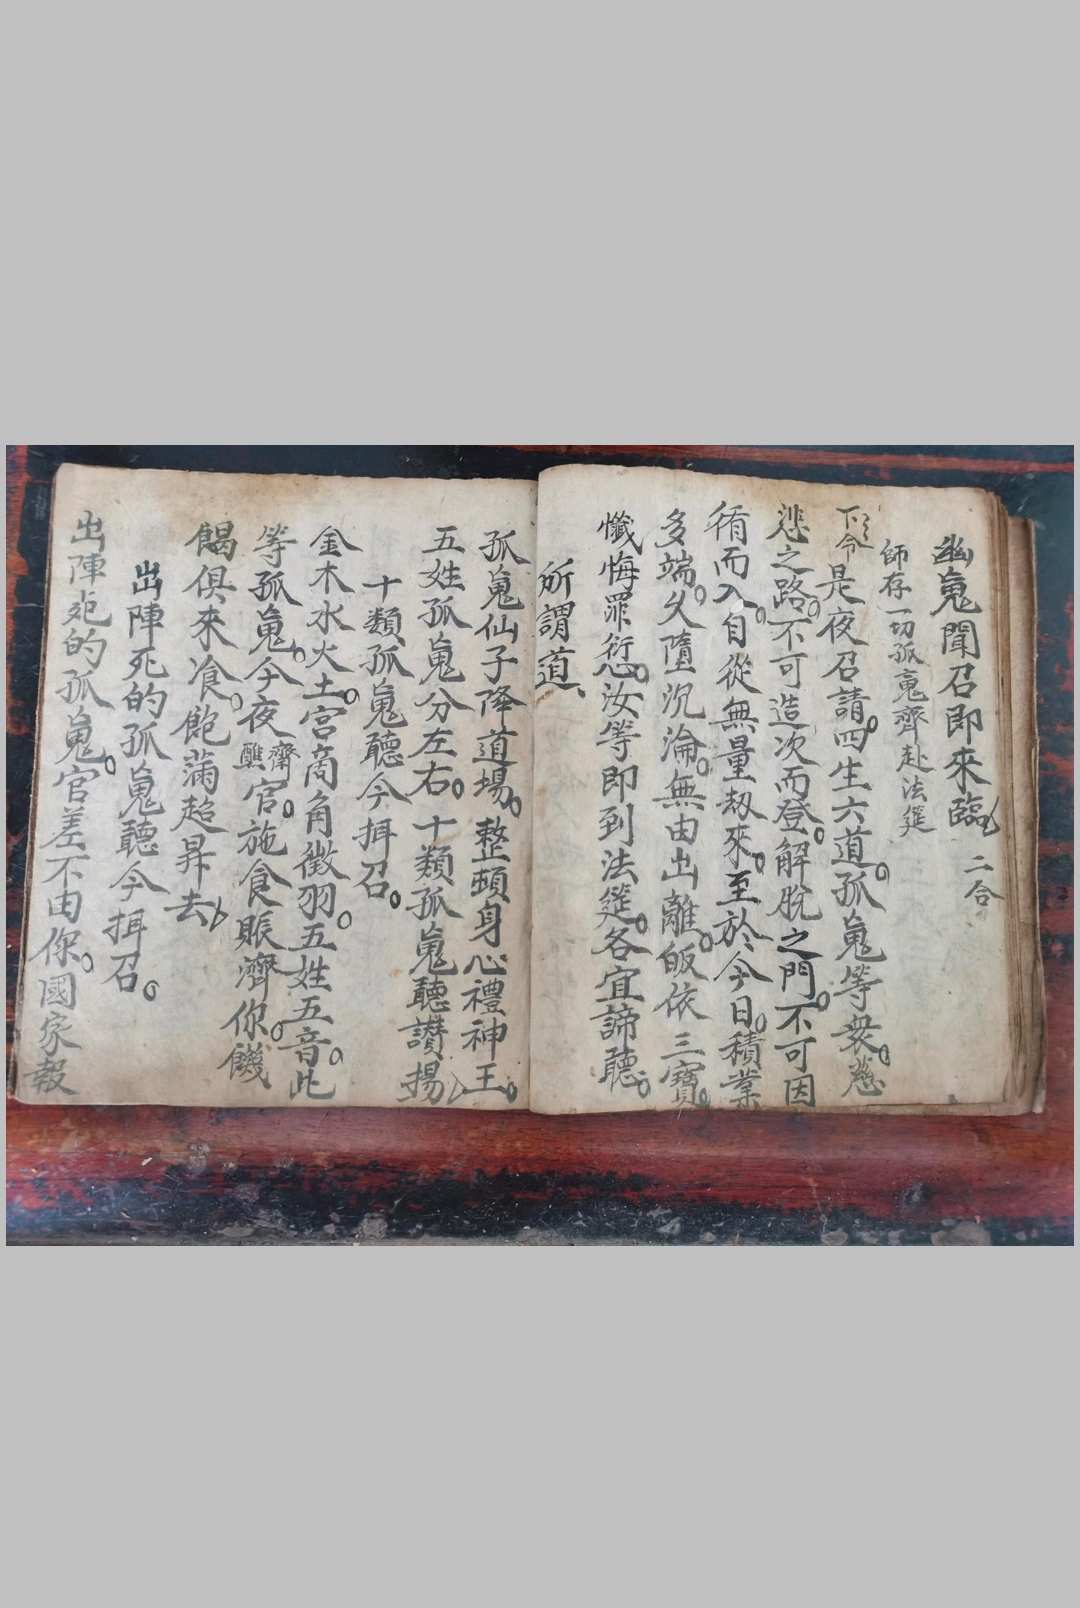 幽鬼聞召即來臨 二合
師存一切孤鬼齊赴法筵
下令是夜召請四生六道孤鬼等衆慈
悲之路不可造次而登解脫之門不可因
循而入自從無量刼來至於今日積業
多端久墮沉淪無由出離皈依三寶
懺悔罪愆汝等即到法筵各宜諦聽
所謂道
孤鬼仙子降道場整頓身心禮神王
五姓孤鬼分左右十類孤鬼聽讃揚
十類孤鬼聽今拜召
金木水火土宮商角徵羽五姓五音此
等孤鬼今夜齋醮官施食賬濟你饑
餲俱來飡飽滿超昇去
出陣死的孤鬼聽今拜召
出陣死的孤鬼官差不由你國家報